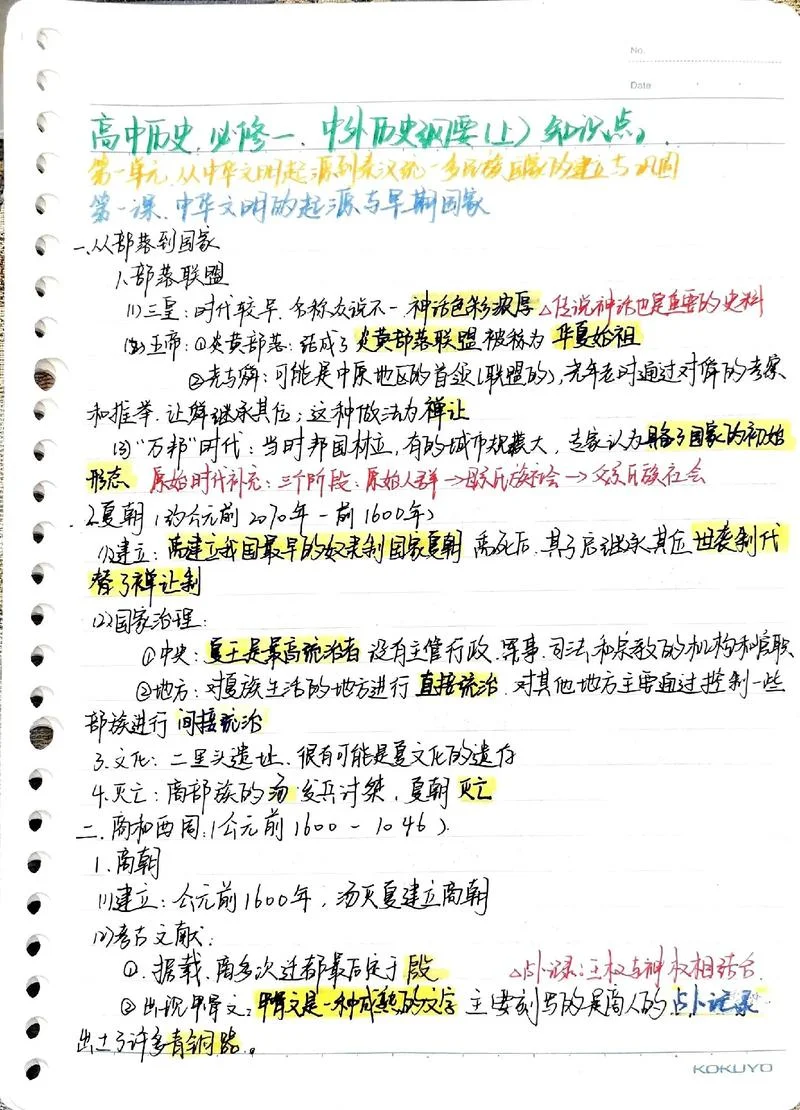 No.
Date
高中历史.必修一.中外历史纲要(上)知识点。
第一单元.从中华文明起源到秦汉统一多民族国家的建立与巩固
第一课.中华文明的起源与早期国家
一.从部落到国家
1.部落联盟
(1)三皇:时代较早.名称众说不一.神话色彩浓厚 △传说神话也是重要的史料
(2)五帝:①炎黄部落:结成了炎黄部落联盟被称为 华夏始祖
②尧与舜:可能是中原地区的首领(联盟的),尧年老时通过对舜的考察
和推举.让舜继承其位;这种做法为禅让
(3)"万邦"时代:当时邦国林立,有的城市规模大,专家认为具备了国家的初始
形态 原始时代补充:三个阶段:原始人群→母系氏族社会→父系氏族社会
2.夏朝(约公元前2070年-前1600年)
(1)建立:禹建立我国最早的奴隶制国家夏朝 禹死后.其子启继承其位 世袭制代
替了禅让制
(2)国家治理:
①中央:夏王是最高统治者 设有主管行政.军事.司法.和宗教的机构和官职
②地方:对夏族生活的地方进行 直接统治.对其他地方主要通过控制一些
部族进行 间接统治
3.文化:二里头遗址.很有可能是夏文化的遗存
4.灭亡:商部族的汤发兵讨桀.夏朝 灭亡
二.商和西周:(公元前1600-1046).
1.商朝
(1)建立:公元前1600年,汤灭夏建立商朝
(2)考古文献:
①.据载.商多次迁都最后定于 殷 △占卜记录:王权与神权相结合.
②出现甲骨文:甲骨文是一种成熟的文字 主要刻写的是商人的 占卜记录
出土了许多青铜器。
KOKUYO